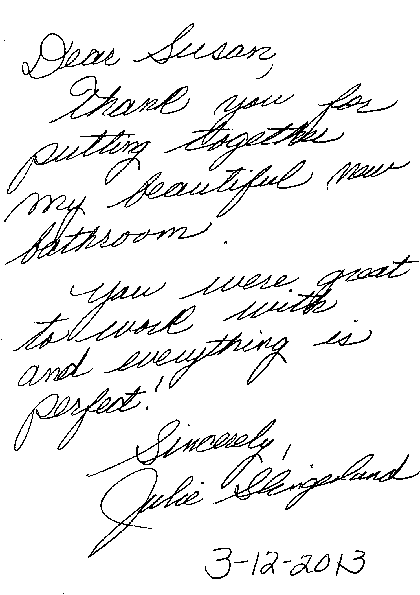 Dear Susan,
Thank you for
putting together
my beautiful new
bathroom.
You were great
to work with
and everything is
perfect!
Sincerely,
Julie Slingerland
3-12-2013